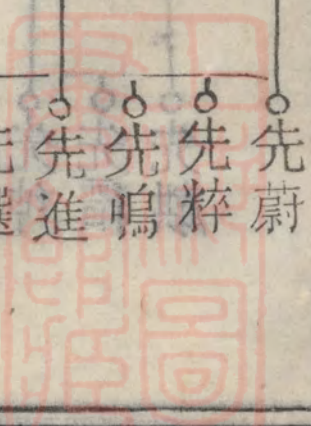 先蔚
先粹
先鳴
先進